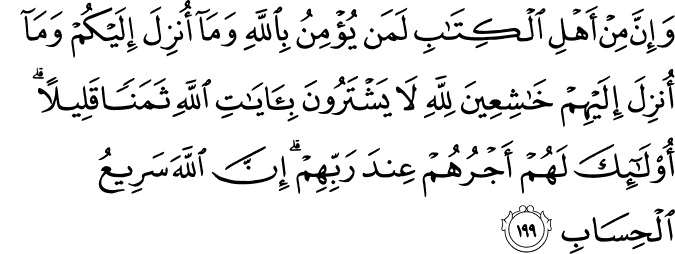 وَإِنَّ مِنْ أَهْلِ ٱلْكِتَٰبِ لَمَن يُؤْمِنُ بِٱللَّهِ وَمَآ أُنزِلَ إِلَيْكُمْ وَمَآ
أُنزِلَ إِلَيْهِمْ خَٰشِعِينَ لِلَّهِ لَا يَشْتَرُونَ بِـَٔايَٰتِ ٱللَّهِ ثَمَنًا قَلِيلًا ۗ
أُو۟لَٰٓئِكَ لَهُمْ أَجْرُهُمْ عِندَ رَبِّهِمْ ۗ إِنَّ ٱللَّهَ سَرِيعُ
ٱلْحِسَابِ ١٩٩